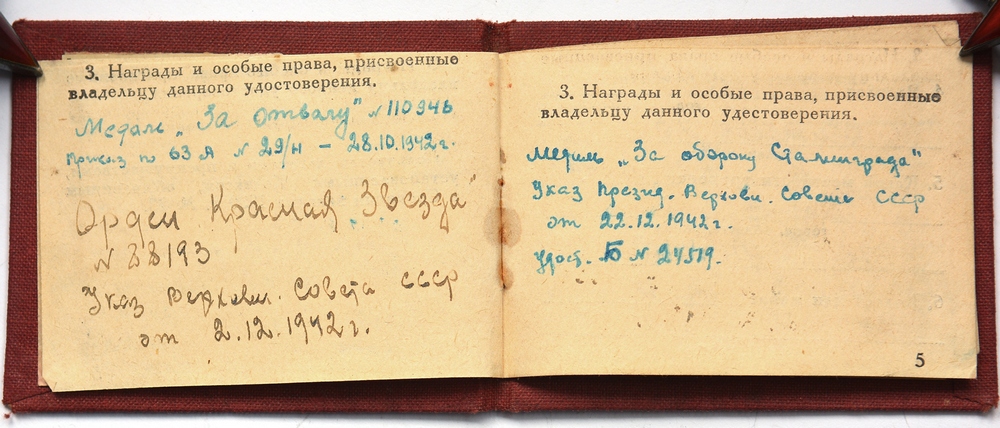 3. Награды и особые права, присвоенные
владельцу данного удостоверения.
Медаль „За отвагу" № 110946
Приказ по 63 А № 29/н – 28.10.1942г.
Орден Красная Звезда"
№ 88193
Указ Верховн. Совета СССР
от 2.12.1942г.
3. Награды и особые права, присвоенные
владельцу данного удостоверения.
Медаль „За оборону Сталинграда"
Указ Презид. Верховн. Совета СССР
от 22.12.1942г.
Удост. Б № 24519.
5